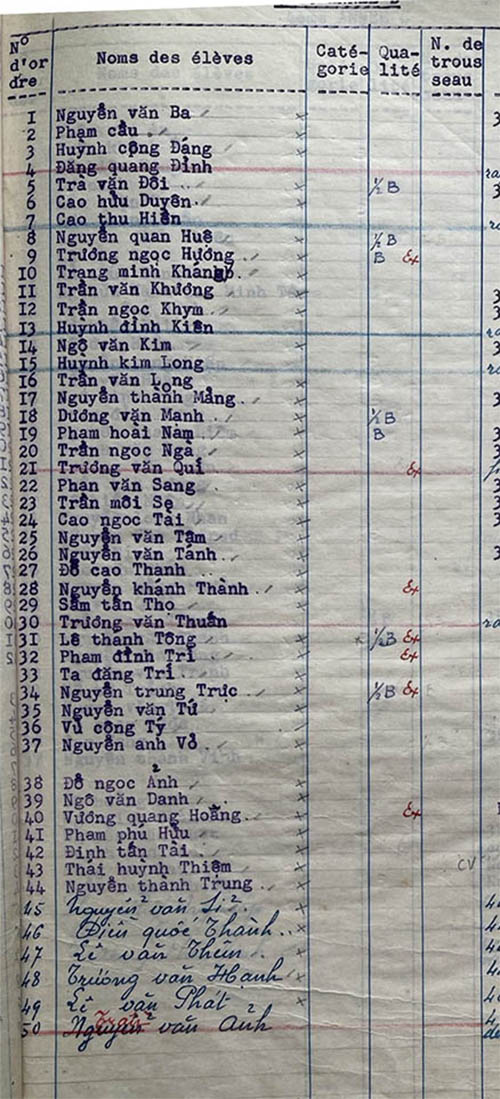 N° d'or dre Noms des élèves Caté- gorie Qua- lité N. de trous seau
1 Nguyễn văn Ba
2 Phạm cầu
3 Huỳnh công Đáng
4 Đặng quang Đỉnh
5 Trà văn Đôi ½ B
6 Cao hữu Duyên
7 Cao thu Hiền
8 Nguyễn quan Huê ½ B
9 Trương ngọc Hưởng B Ex
10 Trang minh Khánh
11 Trần văn Khương
12 Trần ngọc Khym
13 Huỳnh đình Kiên
14 Ngô văn Kim
15 Huỳnh kim Long
16 Trần văn Long
17 Nguyễn thành Mảng
18 Dương văn Manh ½ B
19 Pham hoài Nam B
20 Trần ngọc Ngà
21 Trương văn Quí Ex
22 Phan văn Sang
23 Trần môi Sẹ
24 Cao ngoc Tài
25 Nguyễn văn Tâm
26 Nguyễn văn Tánh
27 Đỗ cao Thanh
28 Nguyễn khánh Thành Ex
29 Sấm tấn Thọ
30 Trương văn Thuấn
31 Lê thanh Tông ½ B Ex
32 Pham đình Trí Ex
33 Ta đăng Trí
34 Nguyễn trung Trực ½ B Ex
35 Nguyễn văn Tứ
36 Vũ công Tý
37 Nguyễn anh Vỏ
38 Đỗ ngoc Ảnh
39 Ngô văn Danh
40 Vương quang Hoằng Ex
41 Pham phú Hữu
42 Đinh tấn Tài
43 Thái huỳnh Thiệm CV
44 Nguyễn thành Trung
45 Nguyễn văn Sĩ
46 Điền quốc Thành
47 Lê văn Thên
48 Trương văn Hanh
49 Lê văn Phát
50 Nguyễn văn Ảnh